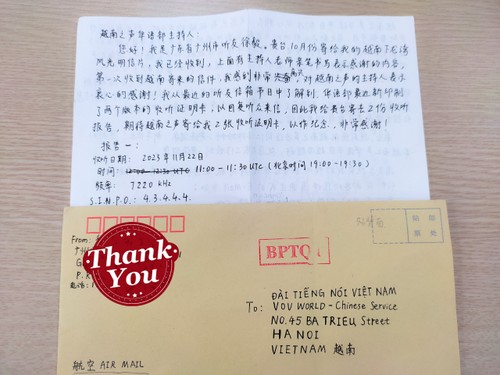 越南之声华语部主持人：
您好！我是广东省广州市听友徐毅。贵台10月份寄给我的越南下龙湾
风光明信片，我已经收到，上面有主持人老师亲笔书写表示感谢的内容。
第一次收到越南寄来的信件，我感到非常 对越南之声的主持人表示
衷心的感谢！我从最近的听友信箱节目中了解到，华语部最近新印制
了两个版本的收听证明卡，以回复听众来信，因此我给贵台寄去2份收听
报告，期待越南之声寄给我2张收听证明卡，以作纪念。非常感谢！
报告一：
收听日期： 2023年11月22日
时间： 12:00-12:30 UTC 11:00-11:30 UTC (北京时间19:00-19:30)
频率： 7220 kHz
S.I.N.P.O.: 4.3.4.4.4.
From:
Thank
You
BPTQ1
贴 邮
票 处
ĐÀI TIẾNG NÓI VIỆT NAM
To: VOV WORLD - Chinese Service
NO.45 BA TRIEU Street
HA NOI
VIETNAM 越南
航空 AIR MAIL